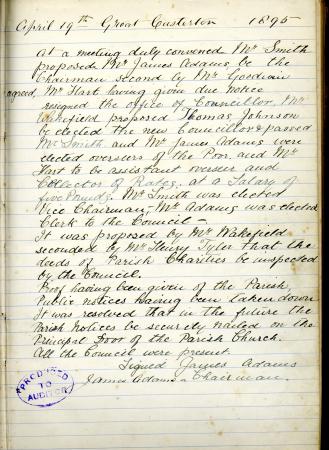 April 19th Great Casterton 1895
At a meeting duly convened Mr Smith
proposed Mr James Adams be the
Chairman Second by Mr Goodwin
agreed, Mr Hart having given due notice
resigned the office of Councillor, Mr
Wakefield proposed Thomas Johnson
be elected the new Councillor & passed
Mr Smith and Mr James Adams were
elected overseers of the Poor and Mr
Hart to be assistant overseer and
Collector of Rates, at a Salary of
five Pounds. Mr Smith was elected
Vice Chairman, Mr Adams was elected
Clerk to the Council -
It was proposed by Mr Wakefield
seconded by Mr Henry Tyler that the
deeds of Parish Charities be inspected
by the Council.
Proof having been given of the Parish,
Public notices having been taken down
It was resolved that in the future the
Parish Notices be securely nailed on the
Principal Door of the Parish Church.
All the Council were present
Signed James Adams
James Adams - Chairman.
PRODUCED
TO
AUDITOR